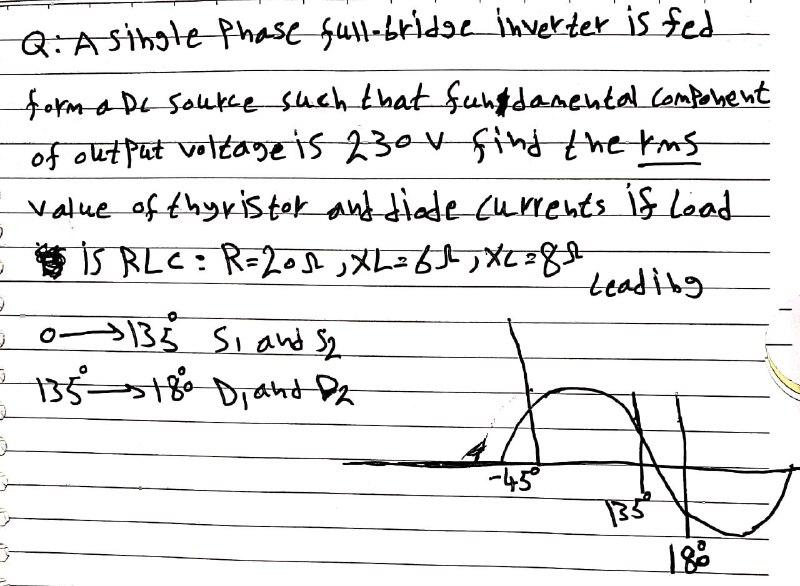 Q: A single phase full-bridge inverter is fed
form a DC source such that fundamental component
of output voltage is 230 V find the rms
value of thyristor and diode currents if load
is RLC: R=20Ω, XL=6Ω, XC=8Ω
Leading
0 → 135° S1 and S2
135° → 180° D1 and D2
-45°
135°
180°